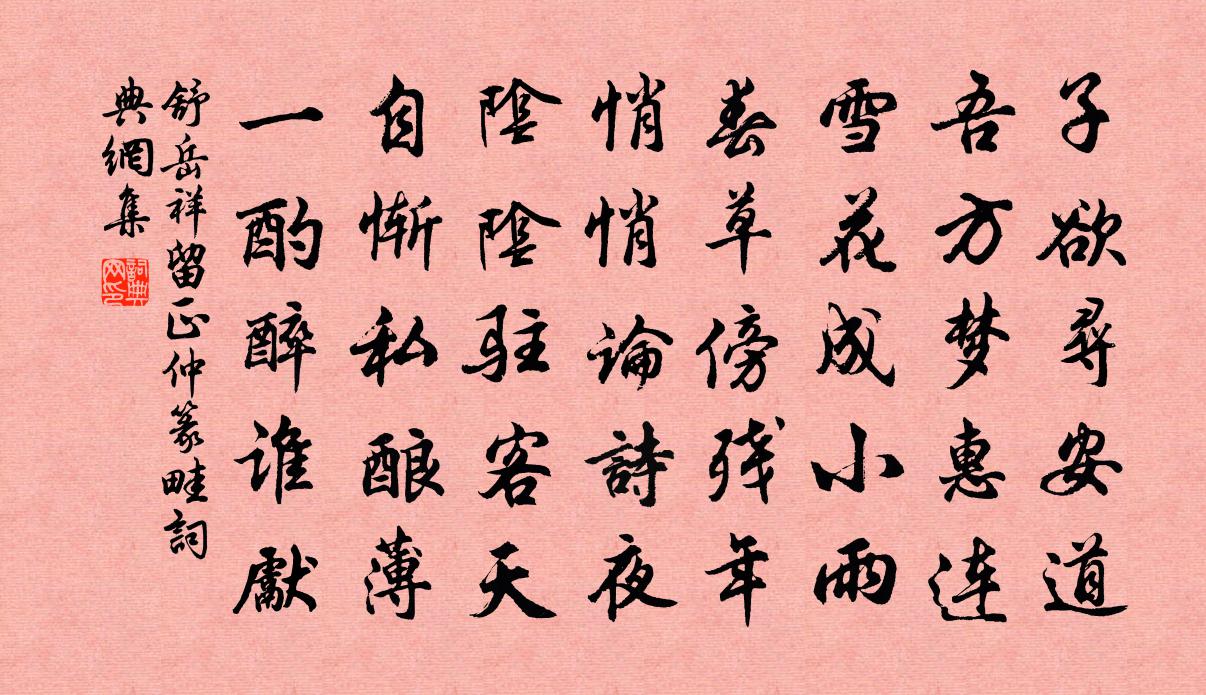 子欲尋安道
吾方梦惠连
雪花成小雨
春草傍残年
悄悄論詩夜
陰陰駐客天
自慚私酿薄
一酌醉谁獻
舒岳祥留正仲篆畦詞
典網集
詞典
网印